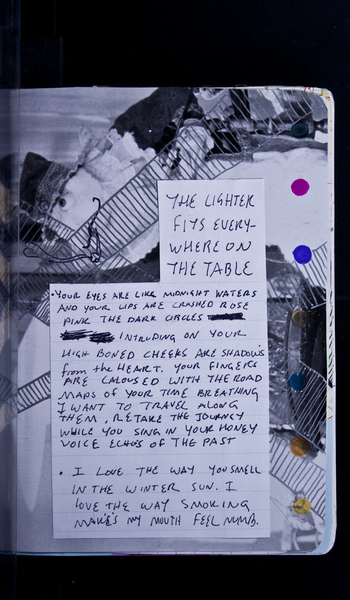 THE LIGHTER
FITS EVERY-
WHERE ON
THE TABLE
·YOUR EYES ARE LIKE MIDNIGHT WATERS
AND YOUR LIPS ARE CRUSHED ROSE
PINK THE DARK CIRCLES
INTRUDING ON YOUR
HIGH BONED CHEEKS ARE SHADOWS
from the HEART. YOUR FINGERS
ARE CALOUSED WITH THE ROAD
MAPS OF YOUR TIME BREATHING
I WANT TO TRAVEL ALONG
THEM, RETAKE THE JOURNEY
WHILE YOU SING IN YOUR HONEY
VOICE ECHOS OF THE PAST
· I LOVE THE WAY YOU SMELL
IN THE WINTER SUN. I
LOVE THE WAY SMOKING
MAKES MY MOUTH FEEL NUMB.